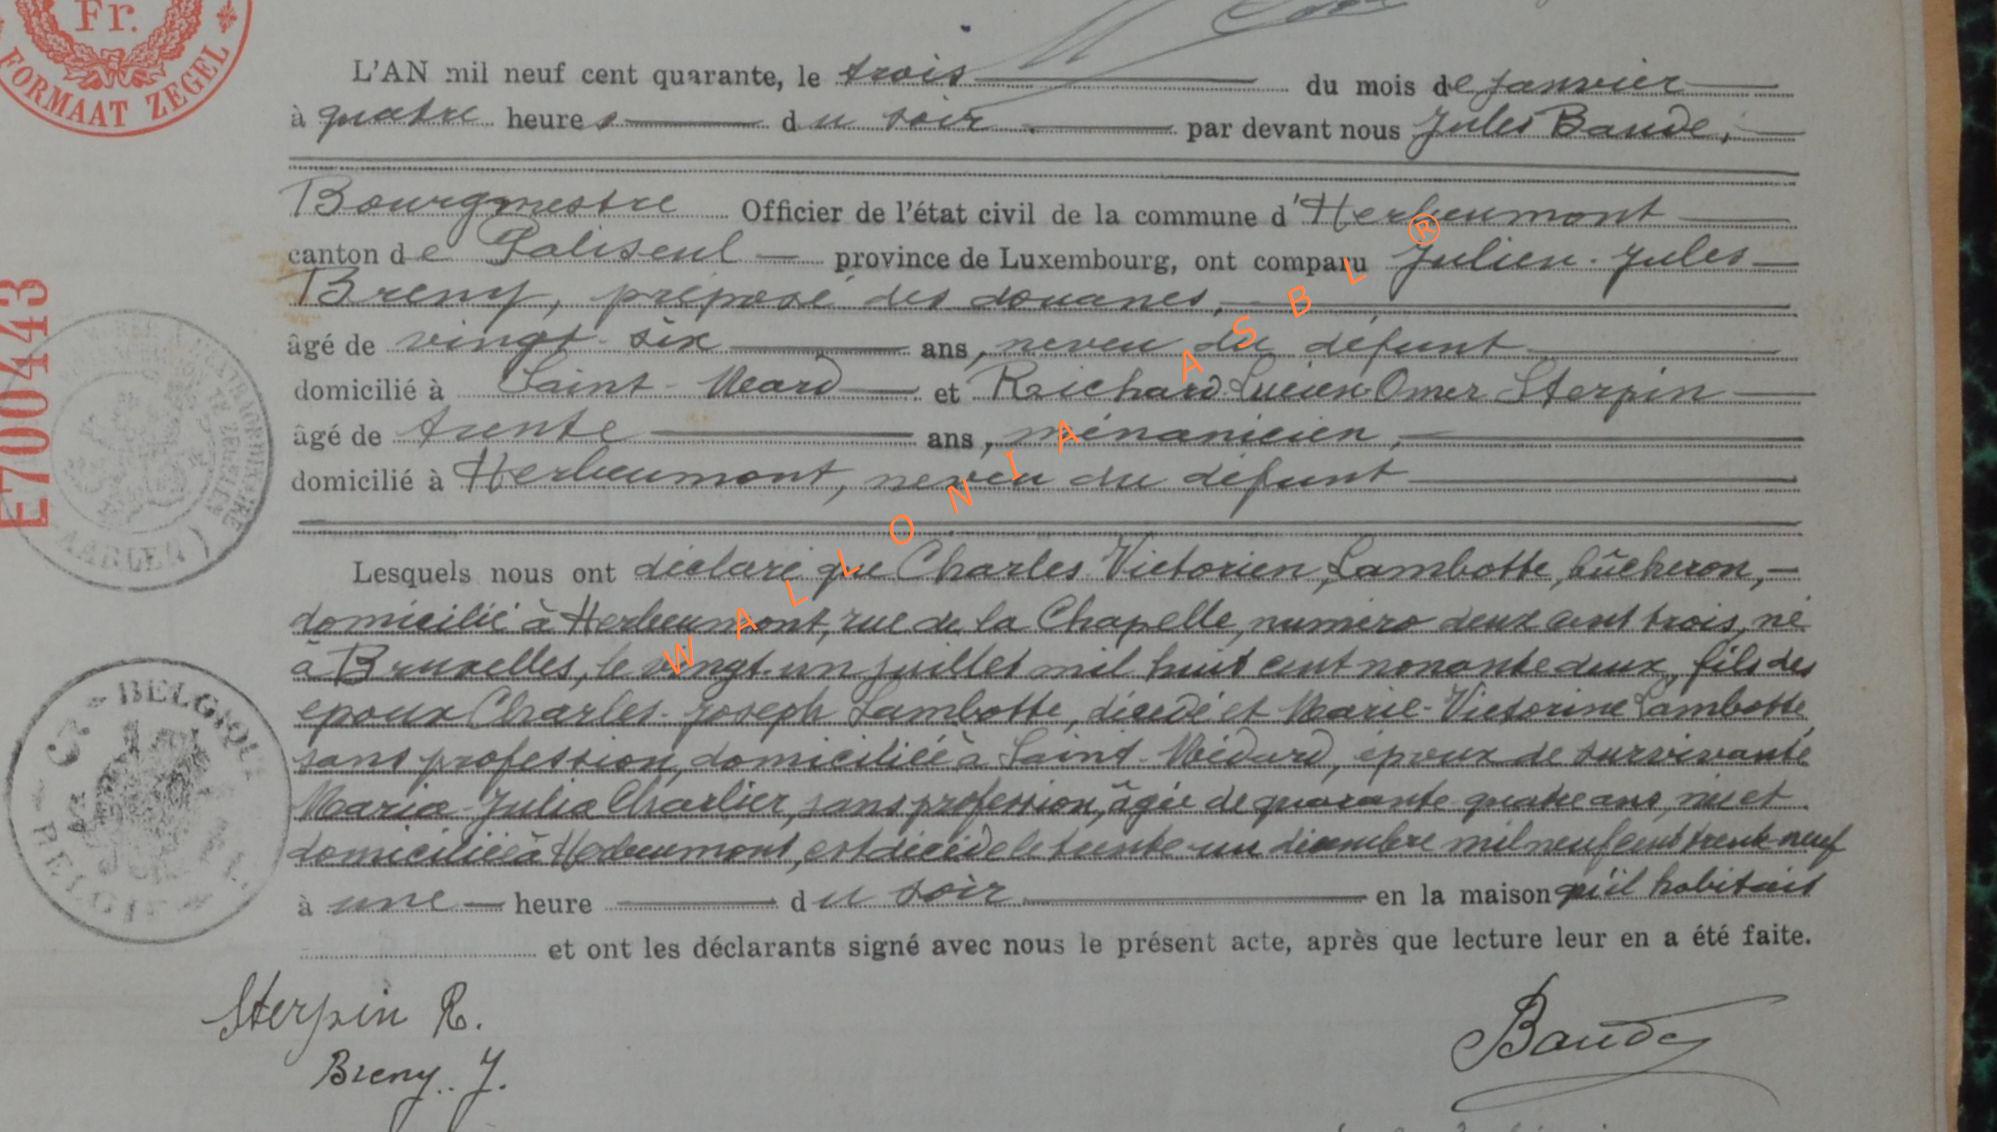 Fr.
FORMAAT ZEGEL
L'AN mil neuf cent quarante, le trois du mois de janvier
à quatre heures du soir par devant nous Jules Baude,
Bourgmestre Officier de l'état civil de la commune d'Herbeumont
canton de Paliseul province de Luxembourg, ont comparu Julien-Jules
Breny, préposé des douanes,
âgé de vingt-six ans, neveu du défunt
domicilié à Saint-Mard et Reichard-Lucien-Omer Sterpin
âgé de trente ans, ménanicien,
domicilié à Herbeumont, neveu du défunt
Lesquels nous ont déclaré que Charles Victorien Lambotte, bûcheron,
domicilié à Herbeumont, rue de la Chapelle, numéro deux cent trois, né
à Bruxelles, le vingt-un juillet mil huit cent nonante deux, fils des
époux Charles-Joseph Lambotte, décédé et Marie-Victorine Lambotte,
sans profession, domiciliée à Saint-Médard, époux de survivante
Maria-Julia Charlier, sans profession, âgée de quarante-quatre ans, née et
domiciliée à Herbeumont, est décédé le trente-un décembre mil neuf cent trente-neuf
à une heure du soir en la maison qu'il habitait
et ont les déclarants signé avec nous le présent acte, après que lecture leur en a été faite.
Sterpin R.
Breny. J.
Baude
E700443
AARLEN
BELGIQUE
BELGIE
WALLONIA ASBL ®